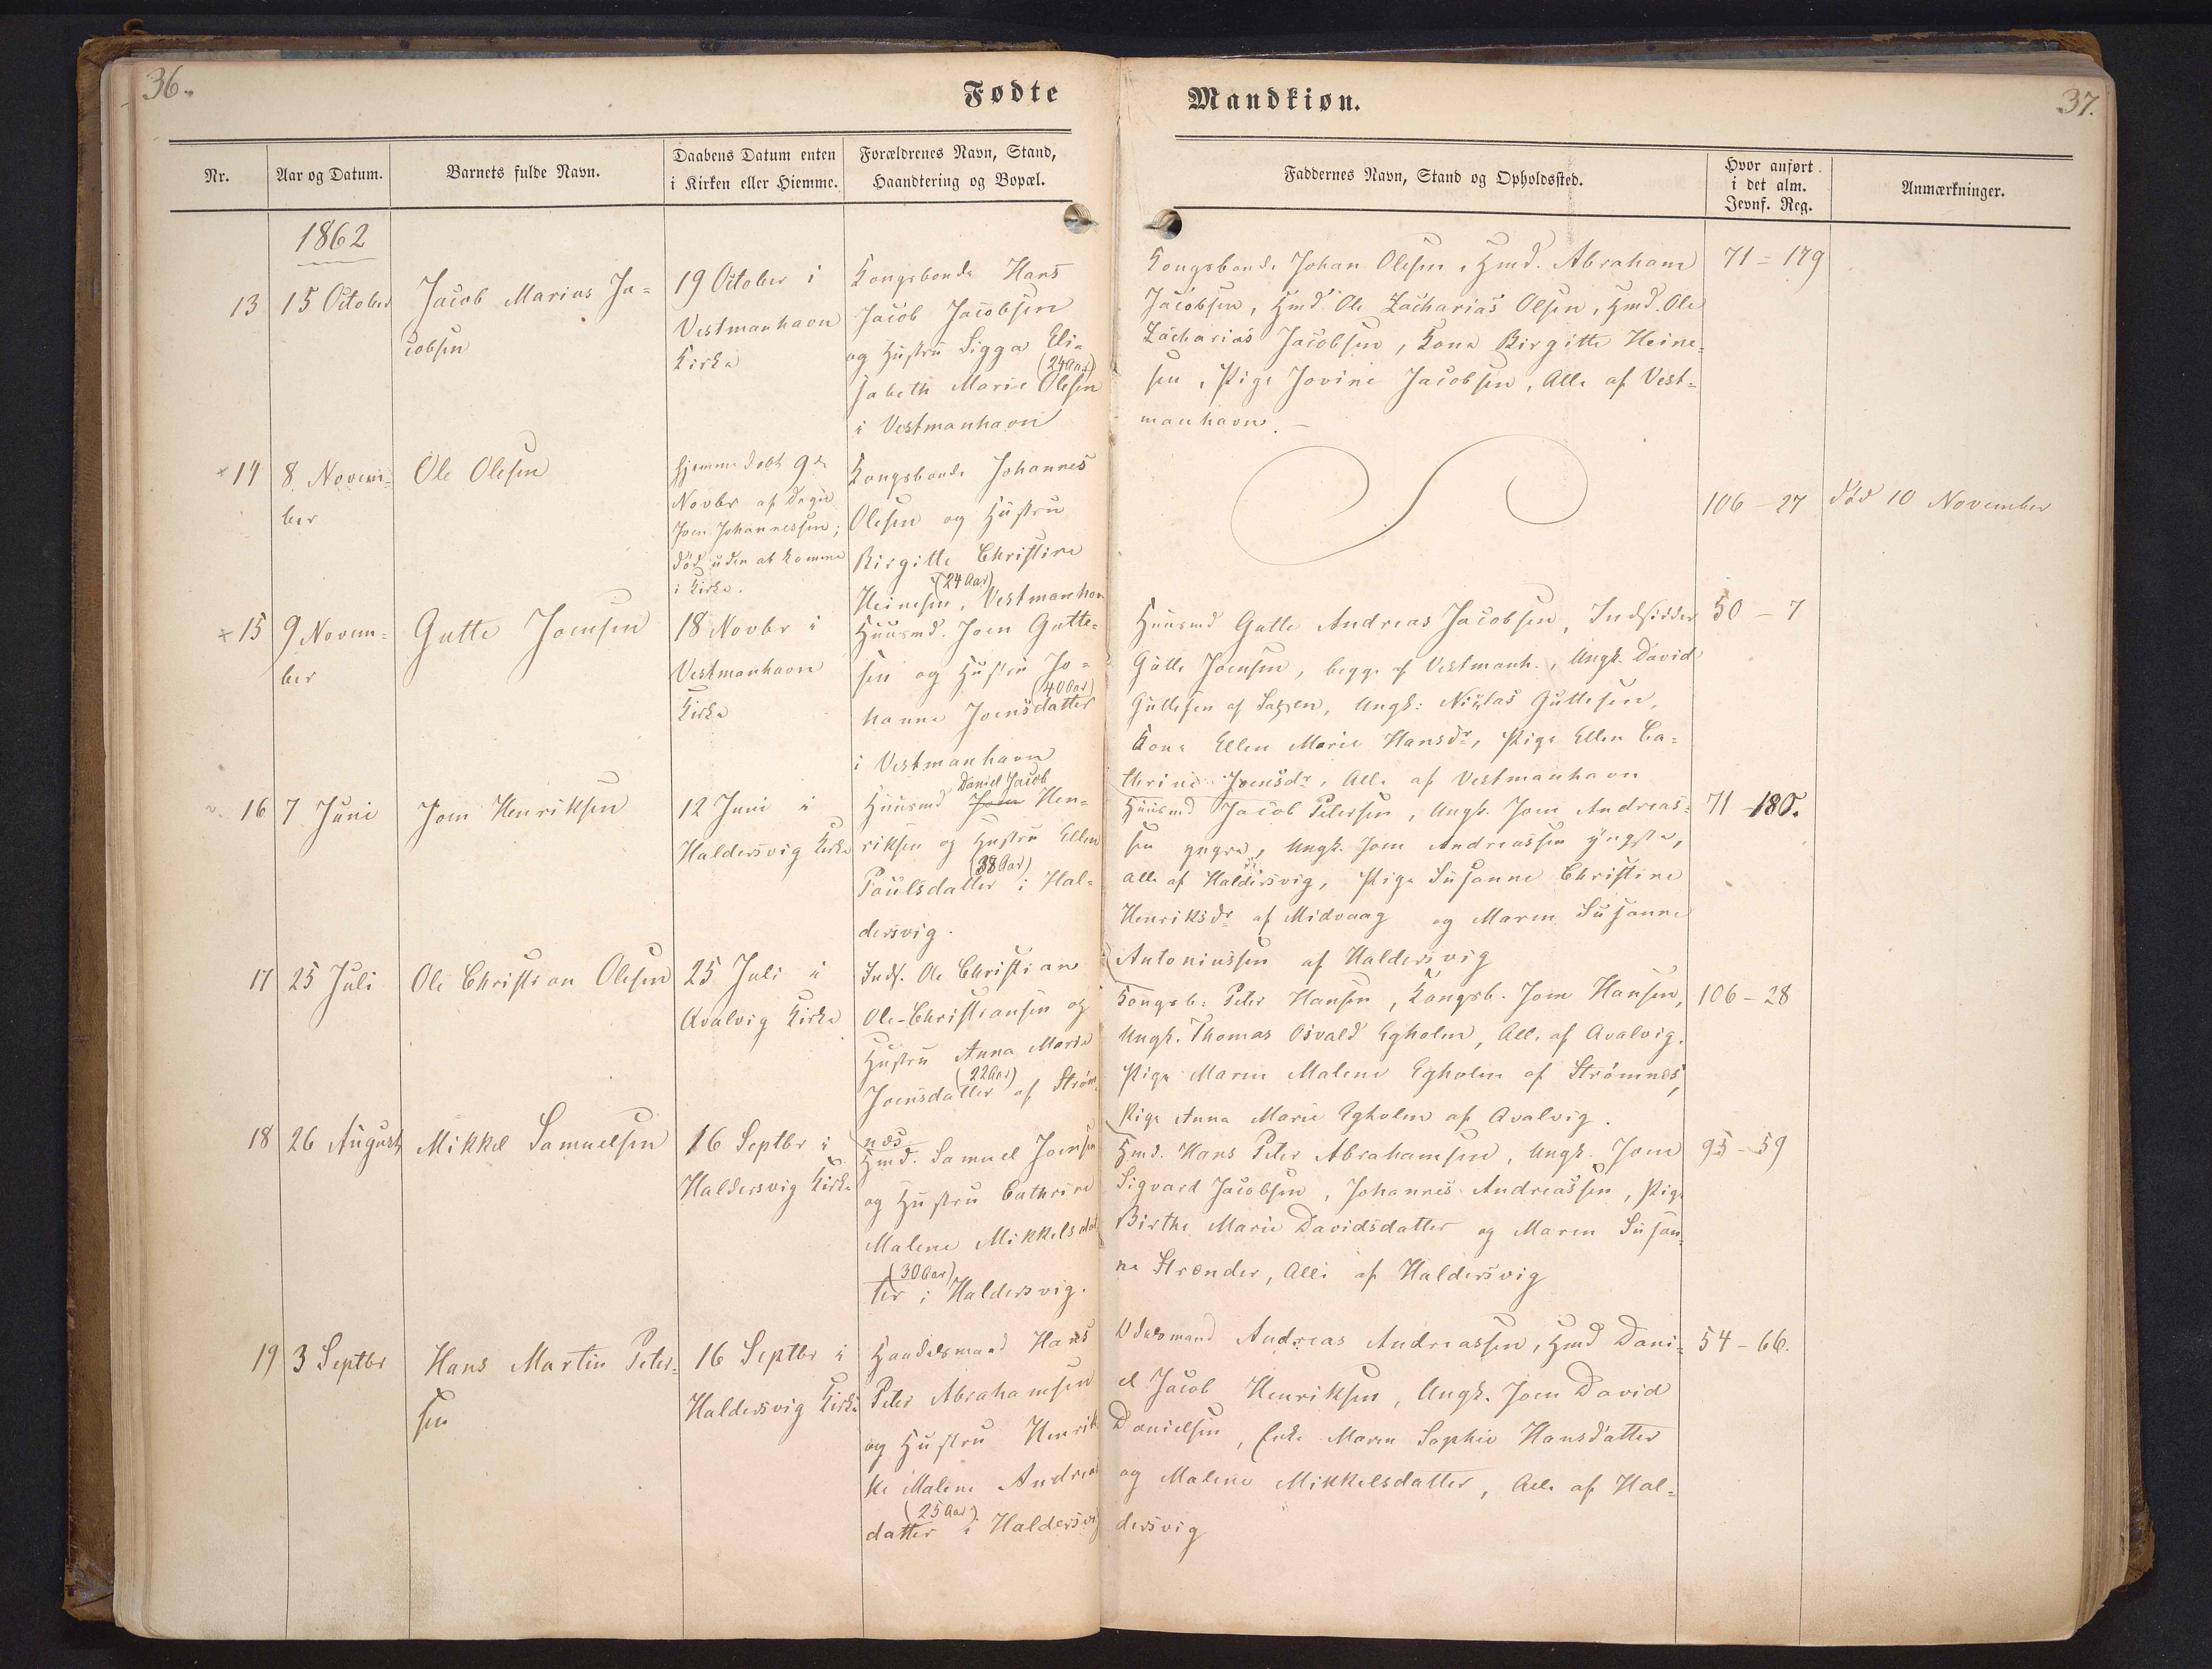 36.
Fødte
Nr.
Aar og Datum.
Barnets fulde Navn.
Daabens Datum enten
i Kirken eller Hiemme.
Forældrenes Navn, Stand,
Haandtering og Bopæl.
1862
13
15 October
Jacob Marius Ja=
cobsen
19 October i
Vestmanhavn
Kirke
Kongsbonde Hans
Jacob Jacobsen
og Hustru Sigga Eli=
(24 Aar)
sabeth Marie Olesen
i Vestmanhavn
+ 14
8 Novem=
ber
Ole Olesen
hjemmedøbt 9de
Novbr af Degn
Joen Johannessen;
død uden at komme
i Kirke.
Kongsbonde Johannes
Olesen og Hustru
Birgitte Christine
(24 Aar)
Heinesen, Vestmanhavn
+ 15
9 Novem=
ber
Gutte Joensen
18 Novbr i
Vestmanhavn
Kirke
Huusmd. Joen Gutte=
sen og Hustru Jo=
(40 Aar)
hanne Joensdatter
i Vestmanhavn
16
7 Juni
Joen Henriksen
12 Juni i
Haldersvig Kirke
Daniel Jacob
Huusmd Joen Hen=
riksen og Hustru Ellen
(38 Aar)
Poulsdatter i Hal=
dersvig.
17
25 Juli
Ole Christian Olesen
25 Juli i
Qvalvig Kirke
Inds. Ole Christian
Ole-Christiansen og
Hustru Anna Maria
(22 Aar)
Joensdatter af Strøm=
næs
18
26 August
Mikkel Samuelsen
16 Septbr i
Haldersvig Kirke
Hmd. Samuel Joensen
og Hustru Cathrine
Malene Mikkelsdat
(30 Aar)
ter i Haldersvig.
19
3 Septbr
Hans Martin Peter=
sen
16 Septbr i
Haldersvig Kirke
Handelsmand Hans
Peter Abrahamsen
og Hustru Henrik
ke Malene Andreas
(25 Aar)
datter i Haldersvig
Mandkiøn.
37.
Faddernes Navn, Stand og Opholdssted.
Hvor anført
i det alm.
Jevnf. Reg.
Anmærkninger.
Kongsbonde Johan Olesen, Hmd. Abraham
Jacobsen, Hmd Ole Zacharias Olsen, Hmd. Ole
Zacharias Jacobsen, Kone Birgitte Heine=
sen, Pige Jovine Jacobsen, Alle af Vest=
manhavn. -
71 = 179
106 - 27
død 10 November
Huusmd Gutte Andreas Jacobsen, Indsidder
Gutte Joensen, begge af Vestmanh., Ungk. David
Guttesen af , Ungk: Niclas Guttesen,
Kone Ellen Marie Hansdr, Pige Ellen Ca=
thrine Joensdr, Alle af Vestmanhavn
50 - 7
Huusmd Jacob Petersen, Ungk. Joen Andreas=
sen yngre, Ungk. Joen Andreassen yngste,
alle af Haldersvig, Pige Susanne Christine
Henriksdr af Midvaag og Maren Susanne
Antoniussen af Haldersvig
71 - 180.
Kongsb: Peter Hansen, Kongsb. Joen Hansen,
Ungk. Thomas Osvald Egholm, Alle af Qvalvig.
Pige Maren Malene Egholm af Strømnæs,
Pige Anna Marie Egholm af Qvalvig.
106 - 28
Hmd. Hans Peter Abrahamsen, Ungk. Joen
Sigvard Jacobsen, Johannes Andreassen, Pige
Birthe Marie Davidsdatter og Maren Susan
ne Strænder, Alle af Haldersvig
95 - 59
Odelsmand Andreas Andreassen, Hmd Dani=
el Jacob Henriksen, Ungk. Joen David
Danielsen, Enke Maren Sophie Hansdatter
og Malene Mikkelsdatter, Alle af Hal=
dersvig
54 - 66.